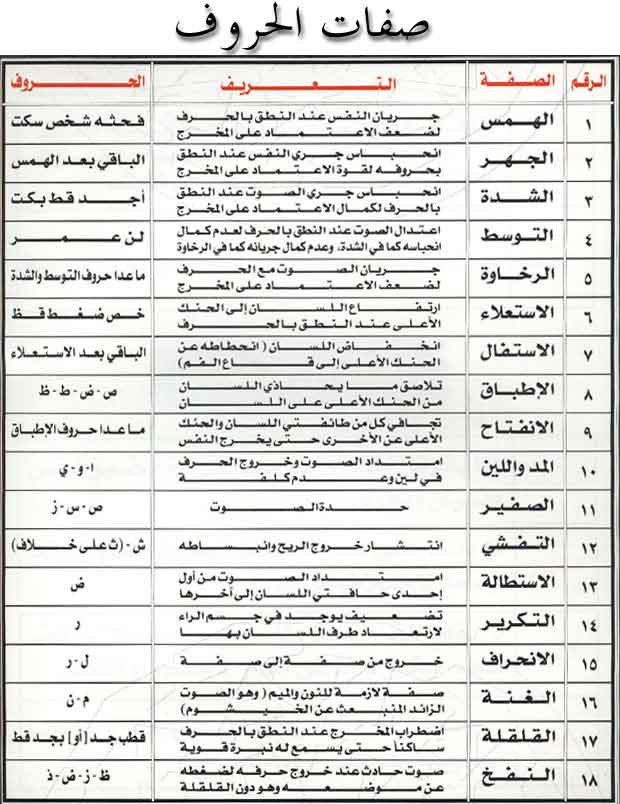 صفات الحروف
الرقم الصفة التعريف الحروف
١ الهمس جريان النفس عند النطق بالحرف فحثه شخص سكت
لضعف الاعتماد على المخرج
٢ الجهر انحباس جري النفس عند النطق الباقي بعد الهمس
بحروفه لقوة الاعتماد على المخرج
٣ الشدة انحباس جري الصوت عند النطق أجد قط بكت
بالحرف لكمال الاعتماد على المخرج
٤ التوسط اعتدال الصوت عند النطق بالحرف لعدم كمال لن عمر
انحباسه كما في الشدة، وعدم كمال جريانه كما في الرخاوة
٥ الرخاوة جريان الصوت مع الحرف ماعدا حروف التوسط والشدة
لضعف الاعتماد على المخرج
٦ الاستعلاء ارتفاع اللسان إلى الحنك خص ضغط قظ
الأعلى عند النطق بالحرف
٧ الاستفال انخفاض اللسان (انحطاطه عن الباقي بعد الاستعلاء
الحنك الأعلى إلى قاع الفم)
٨ الإطباق تلاصق ما يحاذي اللسان ص - ض - ط - ظ
من الحنك الأعلى على اللسان
٩ الانفتاح تجافي كل من طائفتي اللسان والحنك ماعدا حروف الإطباق
الأعلى عن الأخرى حتى يخرج النفس
١٠ المد واللين امتداد الصوت وخروج الحرف ا - و - ي
في لين وعدم كلفة
١١ الصفير حدة الصوت ص - س - ز
١٢ التفشي انتشار خروج الريح وانبساطه ش - (ث على خلاف)
١٣ الاستطالة امتداد الصوت من أول ض
إحدى حافتي اللسان إلى آخرها
١٤ التكرير تضعيف يوجد في جسم الراء ر
لارتعاد طرف اللسان بها
١٥ الانحراف خروج من صفة إلى صفة ل - ر
١٦ الغنة صفة لازمة للنون والميم (وهو الصوت م - ن
الزائد المنبعث عن الخيشوم)
١٧ القلقلة اضطراب المخرج عند النطق بالحرف قطب جد [أو] بجد قط
ساكناً حتى يسمع له نبرة قوية
١٨ النفخ صوت حادث عند خروج حرفه لضغطه ظ - ز - ض - ذ
عن موضعه وهو دون القلقلة